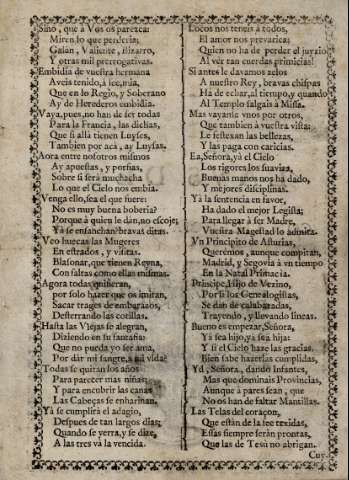 Sino, que à Vos os parezca:
Miren lo que perderia,
Galàn, Valiente, Bizarro,
Y otras mil prerrogativas.
Embidia de vuestra hermana
Aveis tenido,
Que en lo Regio, y Soberano
Ay de Herederos embidia.
Vaya, pues, no han de ser todas
Para la Francia, las dichas,
Que si allà tienen Luyses,
Tambien por acà, ay Luysas.
Aora entre nosotros mismos
Ay apuestas, y porfias,
Sobre si serà muchacha
Lo que el Cielo nos embia.
Venga ello, sea el que fuere:
No es muy buena boberia?
Porque à quien le dàn, no escoje;
Yà se ensanchan? bravas ditas.
Veo huecas las Mugeres
En estrados, y visitas.
Blasonar, que tienen Reyna,
Con faltas como ellas mismas.
Agora todas quisieran,
por solo hazer que os imitan,
Sacar trages de embarazos,
Desterrando las cotillas.
Hasta las Viejas se alegran,
Diziendo en su fantasia
Que no pueda yo ser ama,
Por dár mi sangre, à tal vida?
Todas se quitan los años
Para parecer mas niñas;
Y para encubrir las canas
Las Cabeças se enharinan.
Yà se cumplirà el adagio,
Despues de tan largos dias;
Quando se yerra, y se dize,
A las tres và la vencida.
Locos nos teneis à todos,
El amor nos prevarica:
Quien no ha de perder el juyzio
Al vèr tan cuerdas primicias!
Si antes le davamos zelos
A nuestro Rey, bravas chispas
Ha de echar, al tiempo, y quando
Al Templo salgais à Missa.
Mas vayanse vnos por otros,
Que tambien à vuestra vista
Le festexan las bellezas,
Y las paga con caricias.
Ea, Señora, yà el Cielo
Los rigores los suaviza,
Buenas manos nos ha dado,
Y mejores disciplinas.
Yà la sentencia en favor,
Ha dado el mejor Legista;
Para llegar à ser Madre,
Vuestra Magestad lo admita.
Vn Principito de Asturias,
Querèmos, aunque compitan,
Madrid, y Segovia à vn tiempo
En la Natal Primacia.
Principe, Hijo de Vezino,
Porsi los Genealogistas,
Se dàn de calabazadas,
Trayendo, y llevando lineas.
Bueno es empezar, Señora,
Yà sea hijo, ya sea hija:
Y si el Cielo haze las gracias.
Bien sabe hazerlas cumplidas,
Yd, Señora, dando Infantes,
Mas que dominais Provincias,
Aunque à pares sean, que
No os han de faltar Mantillas.
Las Telas del coraçon,
Que estàn de la fee texidas,
Essas siempre seràn prontas,
Que las de Tesù no abrigan.
Cuy-